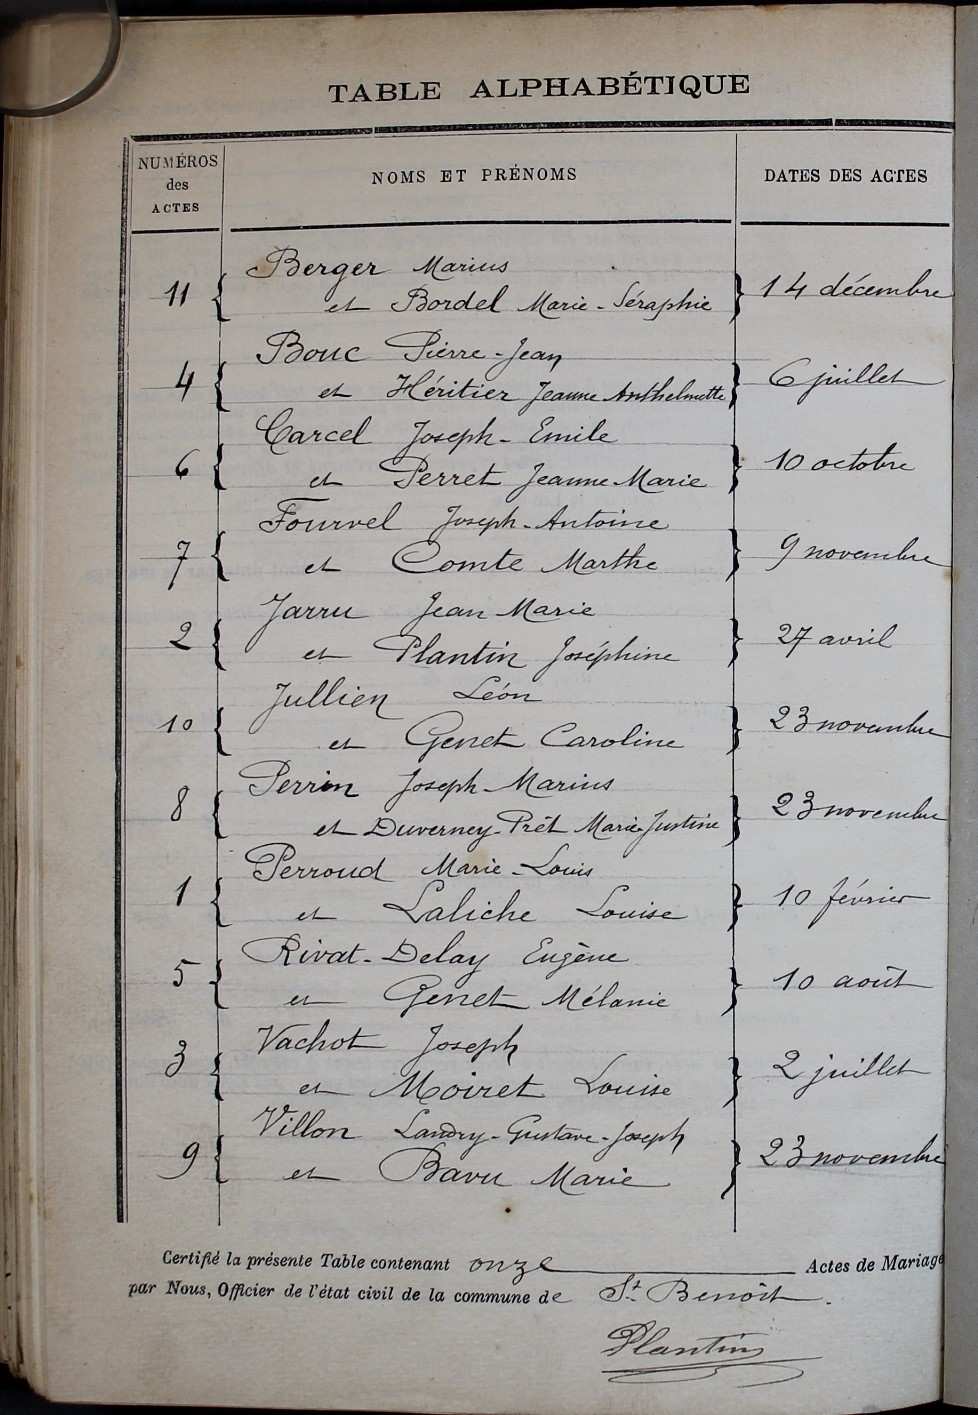 TABLE ALPHABÉTIQUE
NUMÉROS des ACTES NOMS ET PRÉNOMS DATES DES ACTES
Berger Marius
11 et Bordel Marie-Séraphie 14 décembre
Bouc Pierre-Jean
4 et Héritier Jeanne Anthelmette 6 juillet
Carcel Joseph-Emile
6 et Perret Jeanne-Marie 10 octobre
Fournel Joseph-Antoine
7 et Comte Marthe 9 novembre
Jarru Jean Marie
2 et Plantin Joséphine 27 avril
Jullien Léon
10 et Genet Caroline 23 novembre
Perrin Joseph-Marius
8 et Duverney-Prêt Marie-Justine 23 novembre
Perroud Marie-Louis
1 et Laliche Louise 10 février
Rivat-Delay Eugène
5 et Genet Mélanie 10 août
Vachot Joseph
3 et Moiret Louise 2 juillet
Villon Landry-Gustave-Joseph
9 et Bavu Marie 23 novembre
Certifié la présente Table contenant onze Actes de Mariage
par Nous, Officier de l'état civil de la commune de St. Benoît.
Plantin